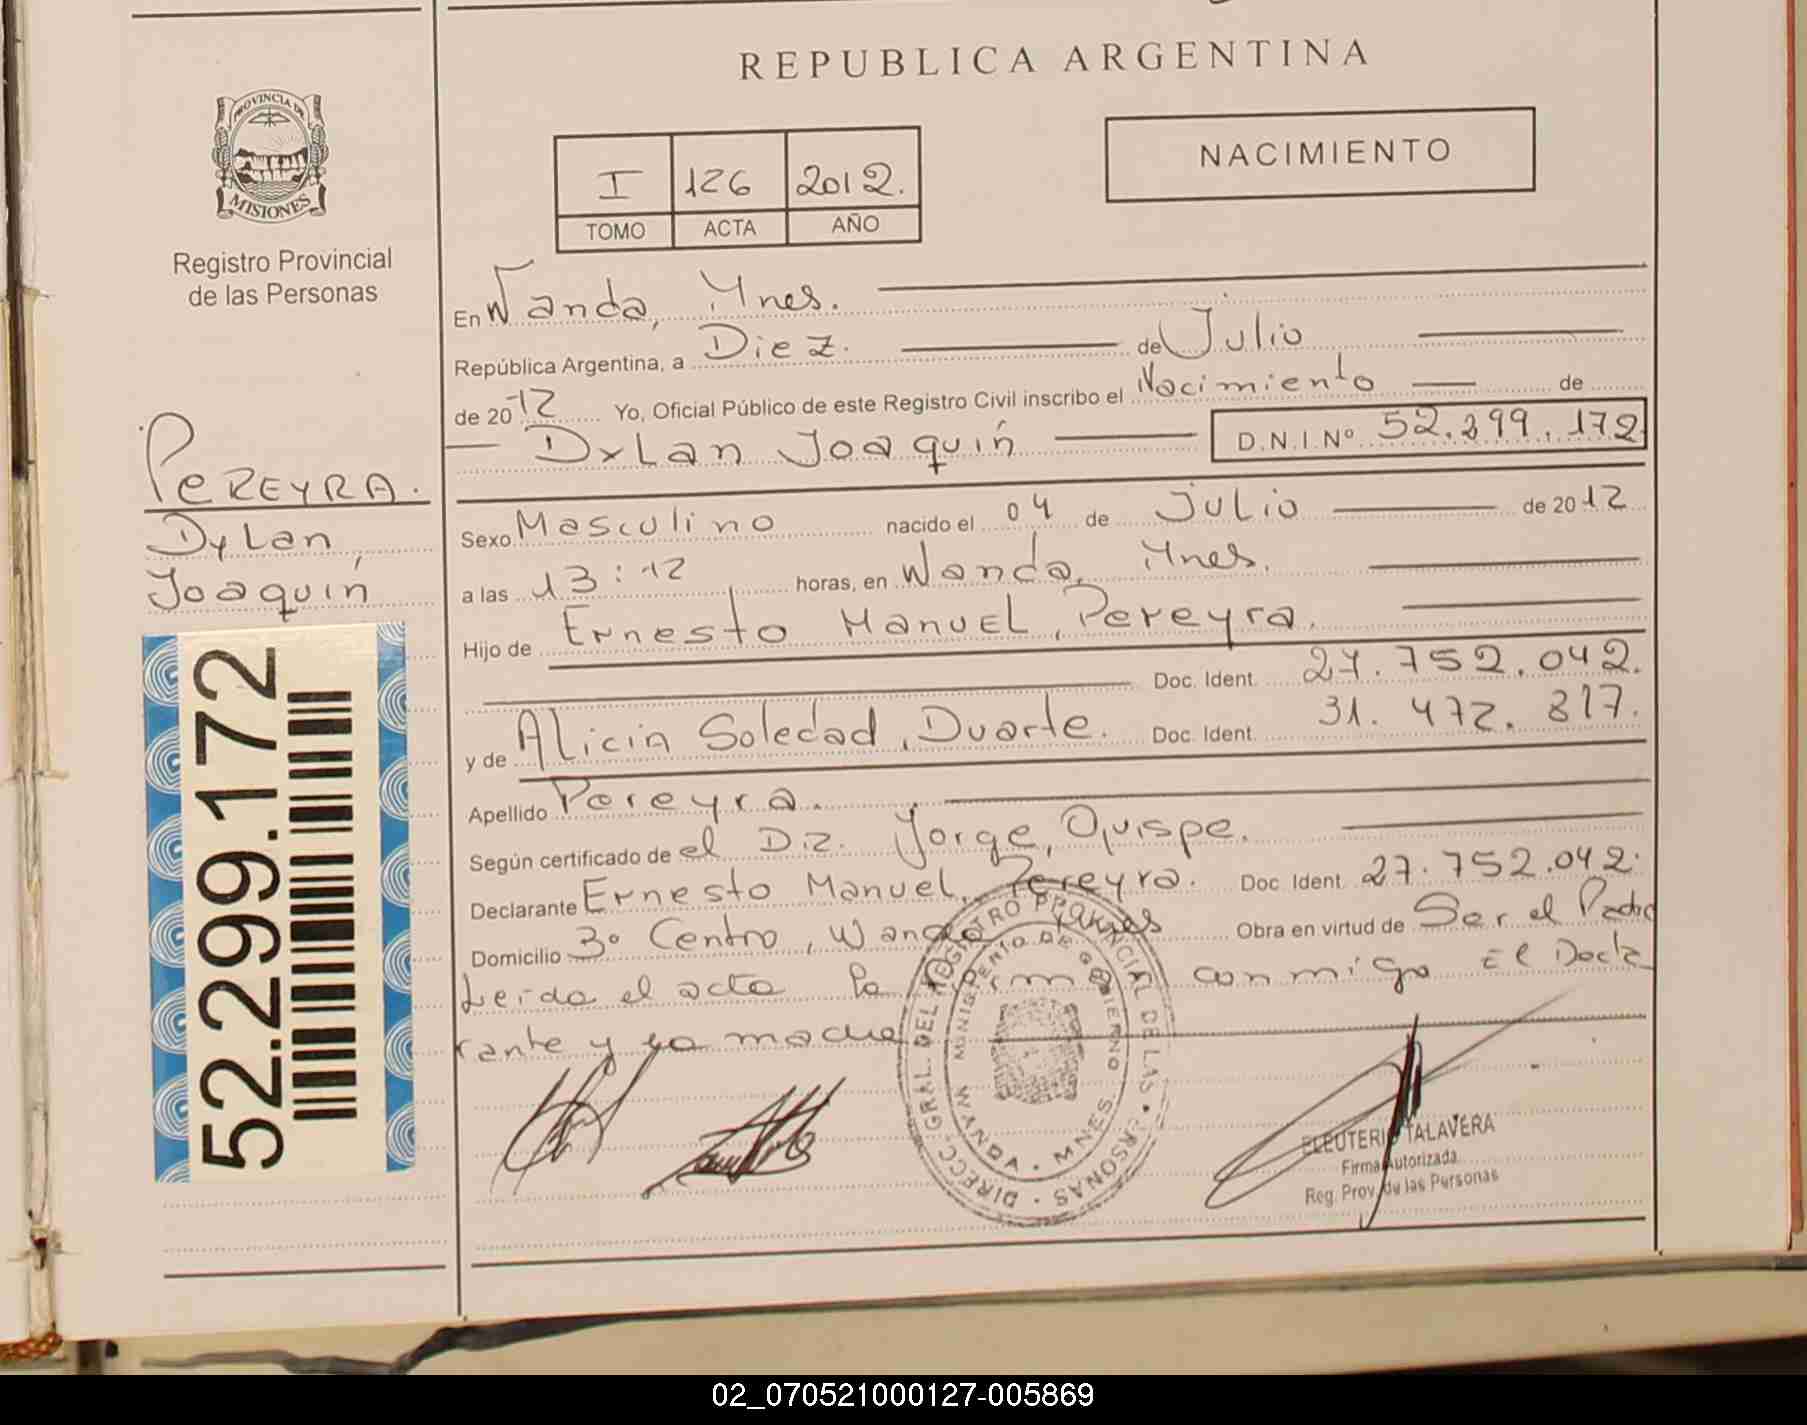 REPUBLICA ARGENTINA
PROVINCIA DE
MISIONES
Registro Provincial
de las Personas
I 126 2012.
TOMO ACTA AÑO
NACIMIENTO
PEREYRA.
Dylan
Joaquín
52.299.172
En Wanda, Mnes.
República Argentina, a Diez. de Julio
de 2012 Yo, Oficial Público de este Registro Civil inscribo el Nacimiento de
Dylan Joaquín D.N.I.Nº 52.299.172
Sexo Masculino nacido el 04 de Julio de 2012
a las 13:12 horas, en Wanda, Mnes.
Hijo de Ernesto Manuel, Pereyra.
Doc. Ident. 27.752.042.
y de Alicia Soledad, Duarte. Doc. Ident. 31.472.817.
Apellido Pereyra.
Según certificado de el Dr. Jorge, Quispe.
Declarante Ernesto Manuel, Pereyra. Doc Ident. 27.752.042.
Domicilio 3º Centro, Wanda Mnes Obra en virtud de Ser el Padre
Leida el acta la firma conmigo El Decla
rante y la madre
DIRECC. GRAL. DEL REGISTRO PROVINCIAL DE LAS PERSONAS
MINISTERIO DE GOBIERNO
WANDA - MNES.
ELEUTERIO TALAVERA
Firma Autorizada
Reg. Prov. de las Personas
02_070521000127-005869